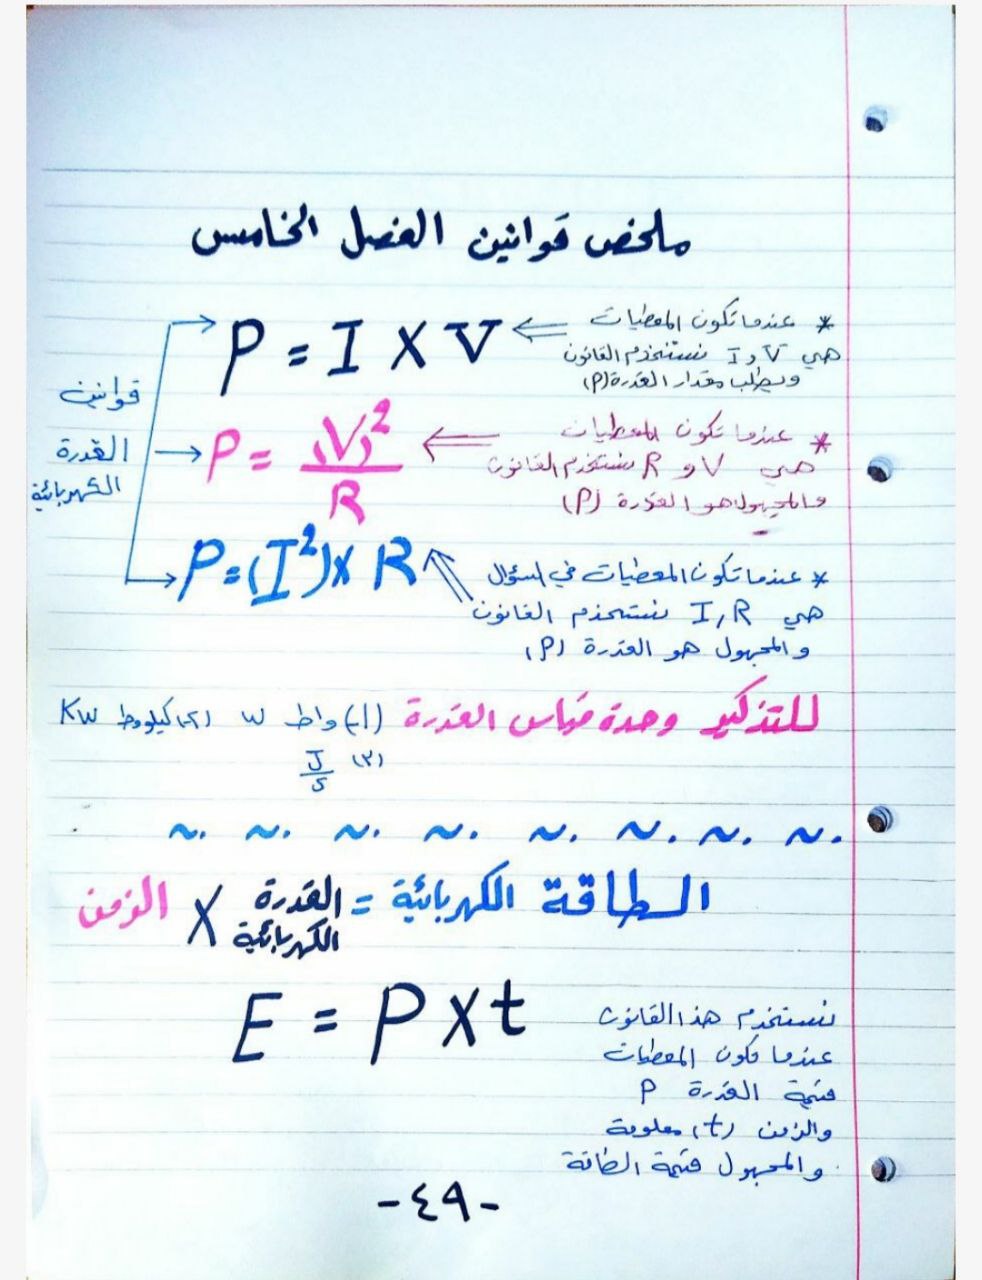 ملخص قوانين الفصل الخامس
P = I X V
* عندما تكون المعطيات
هي V و I نستخدم القانون
ويطلب مقدار القدرة (P)
قوانين
القدرة
الكهربائية
P = (V)² / R
* عندما تكون المعطيات
هي V و R نستخدم القانون
والمجهول هو القدرة (P)
P = (I²) X R
* عندما تكون المعطيات في السؤال
هي I, R نستخدم القانون
والمجهول هو القدرة (P)
للتذكير وحدة قياس القدرة (١-) واط W (٢-) كيلو وط KW
(٣) J/s
الطاقة الكهربائية = القدرة الكهربائية X الزمن
E = P X t
نستخدم هذا القانون
عندما تكون المعطيات
قيمة القدرة P
والزمن (t) معلومة
والمجهول قيمة الطاقة
-٤٩-